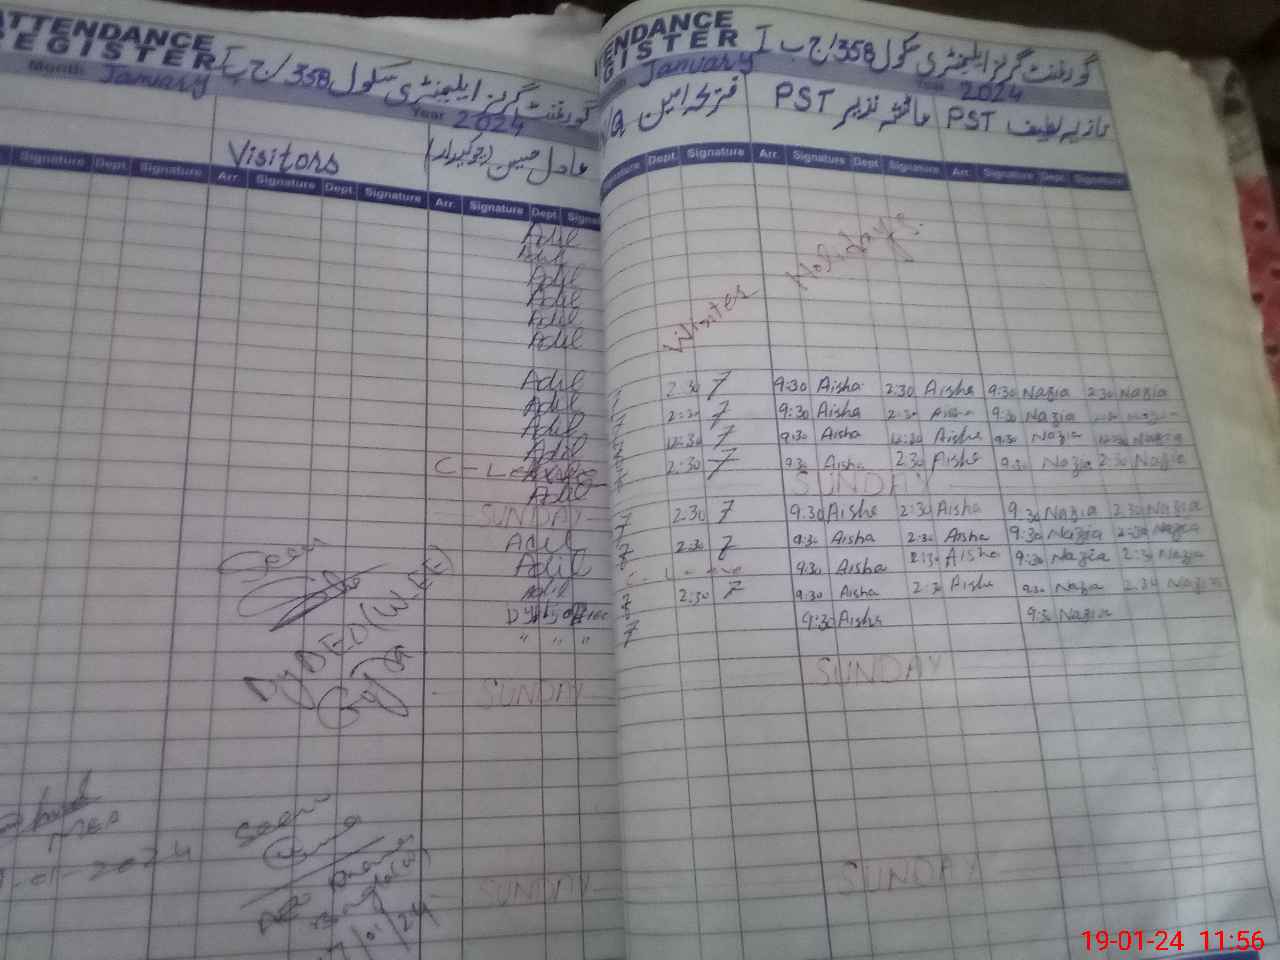 ATTENDANCE
REGISTER
گورنمنٹ گرلز ایلیمنٹری سکول 358/ج ب I
Month January
Year 2024
Visitors
عادل حسین (چوکیدار)
Signature Dept. Signature Arr. Signature Dept. Signature Arr. Signature Dept
Adil
Adil
Adil
Adil
Adil
Adil
Adil
Adil
Adil
Adil
C-Leave
Adil
SUNDAY
Adil
Adil
Adil
" " "
SUNDAY
Seen
DyDEO(W.EE)
2024
Seen
SUNDAY
ENDANCE
GISTER
گورنمنٹ گرلز ایلیمنٹری سکول 358/ج ب I
January
Year 2024
PST عائشہ نذیر
PST نازیہ لطیف
Dept. Signature Arr. Signature Dept. Signature Arr. Signature Dept. Signature
Winter Holidays.
2:30 7 9:30 Aisha 2:30 Aisha 9:30 Nazia 2:30 Nazia
2:30 7 9:30 Aisha 2:30 Aisha 9:30 Nazia
12:30 7 9:30 Aisha 12:30 Aisha 9:30 Nazia 12:30 Nazia
2:30 7 9:30 Aisha 2:30 Aisha 9:30 Nazia 2:30 Nazia
SUNDAY
7 2:30 7 9:30 Aisha 2:30 Aisha 9:30 Nazia 2:30 Nazia
7 2:30 7 9:30 Aisha 2:30 Aisha 9:30 Nazia 2:30 Nazia
9:30 Aisha 2:30 Aisha 9:30 Nazia 2:30 Nazia
7 2:30 7 9:30 Aisha 2:30 Aisha 9:30 Nazia 2:30 Nazia
7 9:30 Aisha 9:30 Nazia
SUNDAY
SUNDAY
19-01-24 11:56